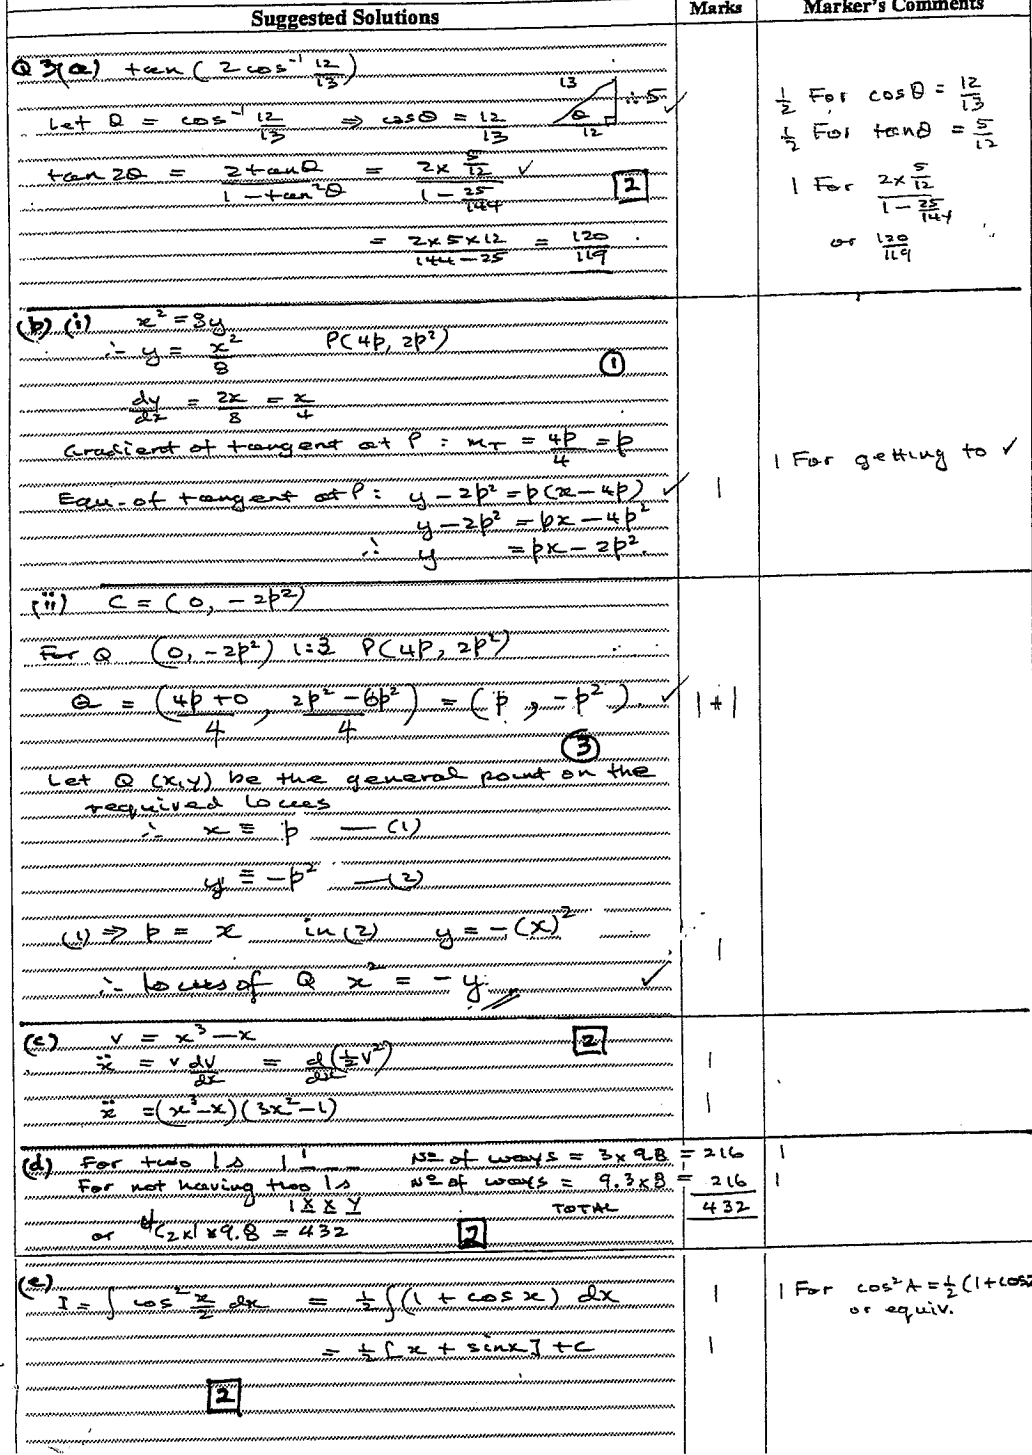 Suggested Solutions Marks Marker's Comments
Q 3(a) tan(2 cos⁻¹ 12/13)
Let θ = cos⁻¹ 12/13 ⇒ cosθ = 12/13 13 θ 12 ∴ 5 ✓
tan 2θ = 2tanθ/(1 − tan²θ) = (2 × 5/12)/(1 − 25/144) ✓ 2
= (2×5×12)/(144−25) = 120/119.
½ For cosθ = 12/13
½ For tanθ = 5/12
1 For (2 × 5/12)/(1 − 25/144)
or 120/119
(b) (i) x² = 8y
∴ y = x²/8 P(4p, 2p²) 1
dy/dx = 2x/8 = x/4
Gradient of tangent at P : m_T = 4p/4 = p
Equ. of tangent at P: y − 2p² = p(x − 4p) ✓ 1 1 For getting to ✓
y − 2p² = px − 4p²
∴ y = px − 2p².
(ii) C = (0, −2p²)
For Q (0, −2p²) 1:3 P(4p, 2p²)
Q = ((4p + 0)/4, (2p² − 6p²)/4) = (p, −p²). ✓ 1 + 1
3
Let Q (x,y) be the general point on the
required locus
∴ x ≡ p — (1)
y ≡ −p² — (2)
(1) ⇒ p = x in (2) y = −(x)²
∴ locus of Q x² = −y. ✓ 1
(c) v = x³ − x 2
ẍ = v dv/dx = d/dx(½v²) 1
ẍ = (x³−x)(3x²−1) 1
(d) For two 1s 1 1 _ _ Nº of ways = 3×9.8 = 216 1
For not having two 1s Nº of ways = 9.3×8 = 216 1
1 X X Y TOTAL 432
or ⁴C₂×1×9.8 = 432 2
(e)
I = ∫ cos² x/2 dx = ½∫(1 + cos x) dx 1 1 For cos²A = ½(1+cos2
or equiv.
= ½[x + sinx] + c 1
2